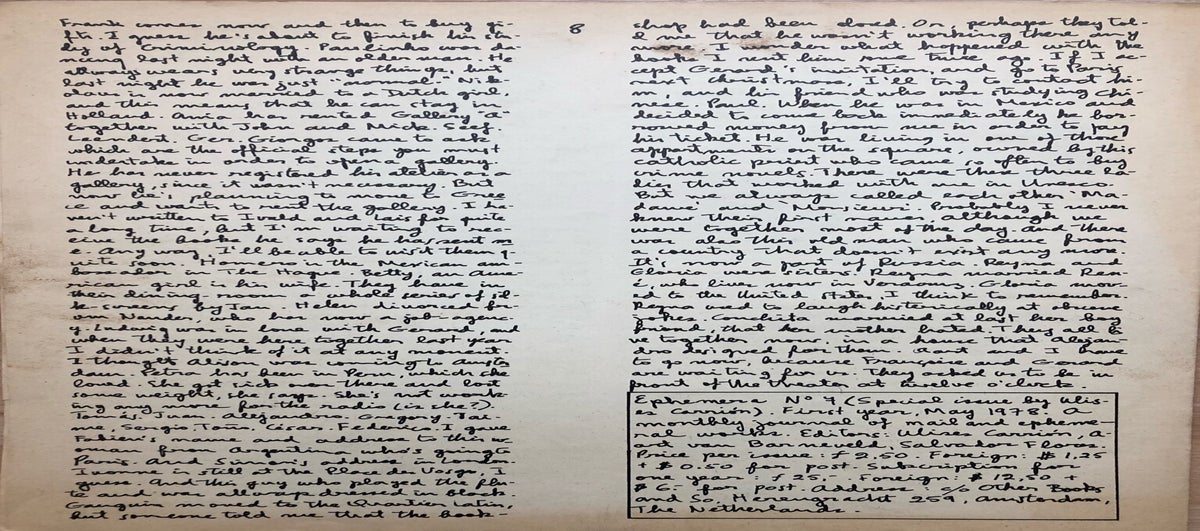 Frank comes now and then to buy gi-
fts. I guess he's about to finish his stu-
dy of Criminology. Paulinho was da-
ncing last night with an older man. He
always wears very strange things, but
last night he was just "normal". Nik-
olaus is now married to a Dutch girl,
and this means that he can stay in
Holland. Ania has rented Gallery "A"
together with John and Mick. Seef.
Leendert. Ger. Giorgos came to ask
which are the official steps you must
undertake in order to open a gallery.
He has never registered his atelier as a
gallery, since it wasn't necessary. But
now he's planning to move to Gree
ce and want to rent the gallery. I ha-
ven't written to Ivald and Lais for quite
a long time, but I'm waiting to rec-
eive the books he says he has sent m
e. Any way, I'll be able to visit them q
uite soon. is the Mexican am-
bassador in The Hague. Betty, an Ame-
rican girl is his wife. They have in
their dining room a whole series of sil-
k screens by Jan Helen divorced fr-
om Nander, who has now a job-agenc-
y. Ludwig was in love with Gerard, and
when they were here together last year
I didn't think of it at any moment.
I thought Alison was coming to Amste
dam. Petra has been in Peru, which she
loved. She got sick over there and lost
some weight, she says. She's not work-
ing any more for the radio (is she?).
Tomás, Juan. Alejandro. Gregory. Jai-
me, Sergio. Toño, César. Federico. I gave
Fabien's name and address to this w-
oman from Argentina who's going to
Paris. And Simon's address in London.
Ivonne is still at the Place des Vosges, I
guess. And this guy who played the flu-
te and was allways dressed in black.
Gauguin moved to the Quartier Latin,
but someone told me that the book-
8
shop had been closed. Or, perhaps they tol-
d me that he wasn't working there any
more. I wonder what happened with the
books I sent him some time ago. If I ac-
cept Gerard's invitation, and go to Paris
next Christmas, I'll try to contact hi-
m, and his friend who was studying Chi-
nese. Paul. When he was in Mexico and
decided to come back immediately he bor-
rowed money from me in order to pay
his ticket. He was living in one of those
appartments on the square, owned by this
catholic priest who came so often to buy
crime novels. There were these three la-
dies that worked with me in Unesco.
But we always called each other "Ma-
dame" and "Monsieur". Probably I never
knew their first names, although we
were together most of the day. And there
was also this old man who came from
a country that doesn't exist any more.
It's now a part of Russia. Reyna and
Gloria were sisters. Reyna married Ren-
é, who lives now in Veracruz. Gloria mov-
ed to the United States, I think to remember.
Reyna used to laugh histerically at obscene
jokes. Conchita married at last her boy
friend, that her mother hated. They all li
ve together now, in a house that Alejan-
dro designed for them. Aart and I have
to go now, because Françoise and Gerard
are waiting for us. They asked us to be in
front of the theater at twelve o'clock.
Ephemera Nº 7 (Special issue by Ulis-
es Carrión). First year, May 1978. A
monthly journal of mail and epheme-
ral works. Editors: Ulises Carrión, A-
art van Barneveld, Salvador Flores.
Price per issue: f 2,50. Foreign: $ 1.25
+ $ 0.50 for post. Subscription for
one year: f 25,-. Foreign: $ 12.50 +
$ 6.- for post. Address: c/o Other Books
and So, Herengracht 259, Amsterdam,
The Netherlands.